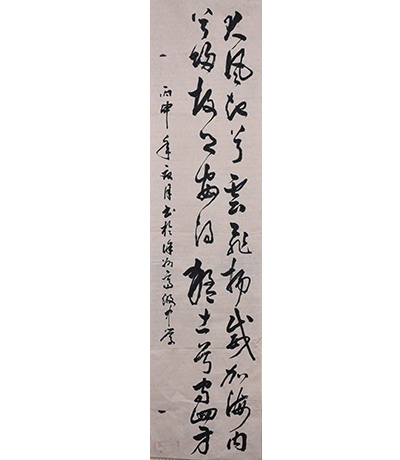 大風起兮雲飛揚威加海内
兮歸故鄉安得猛士兮守四方
丙申年月書於徐州高級中學